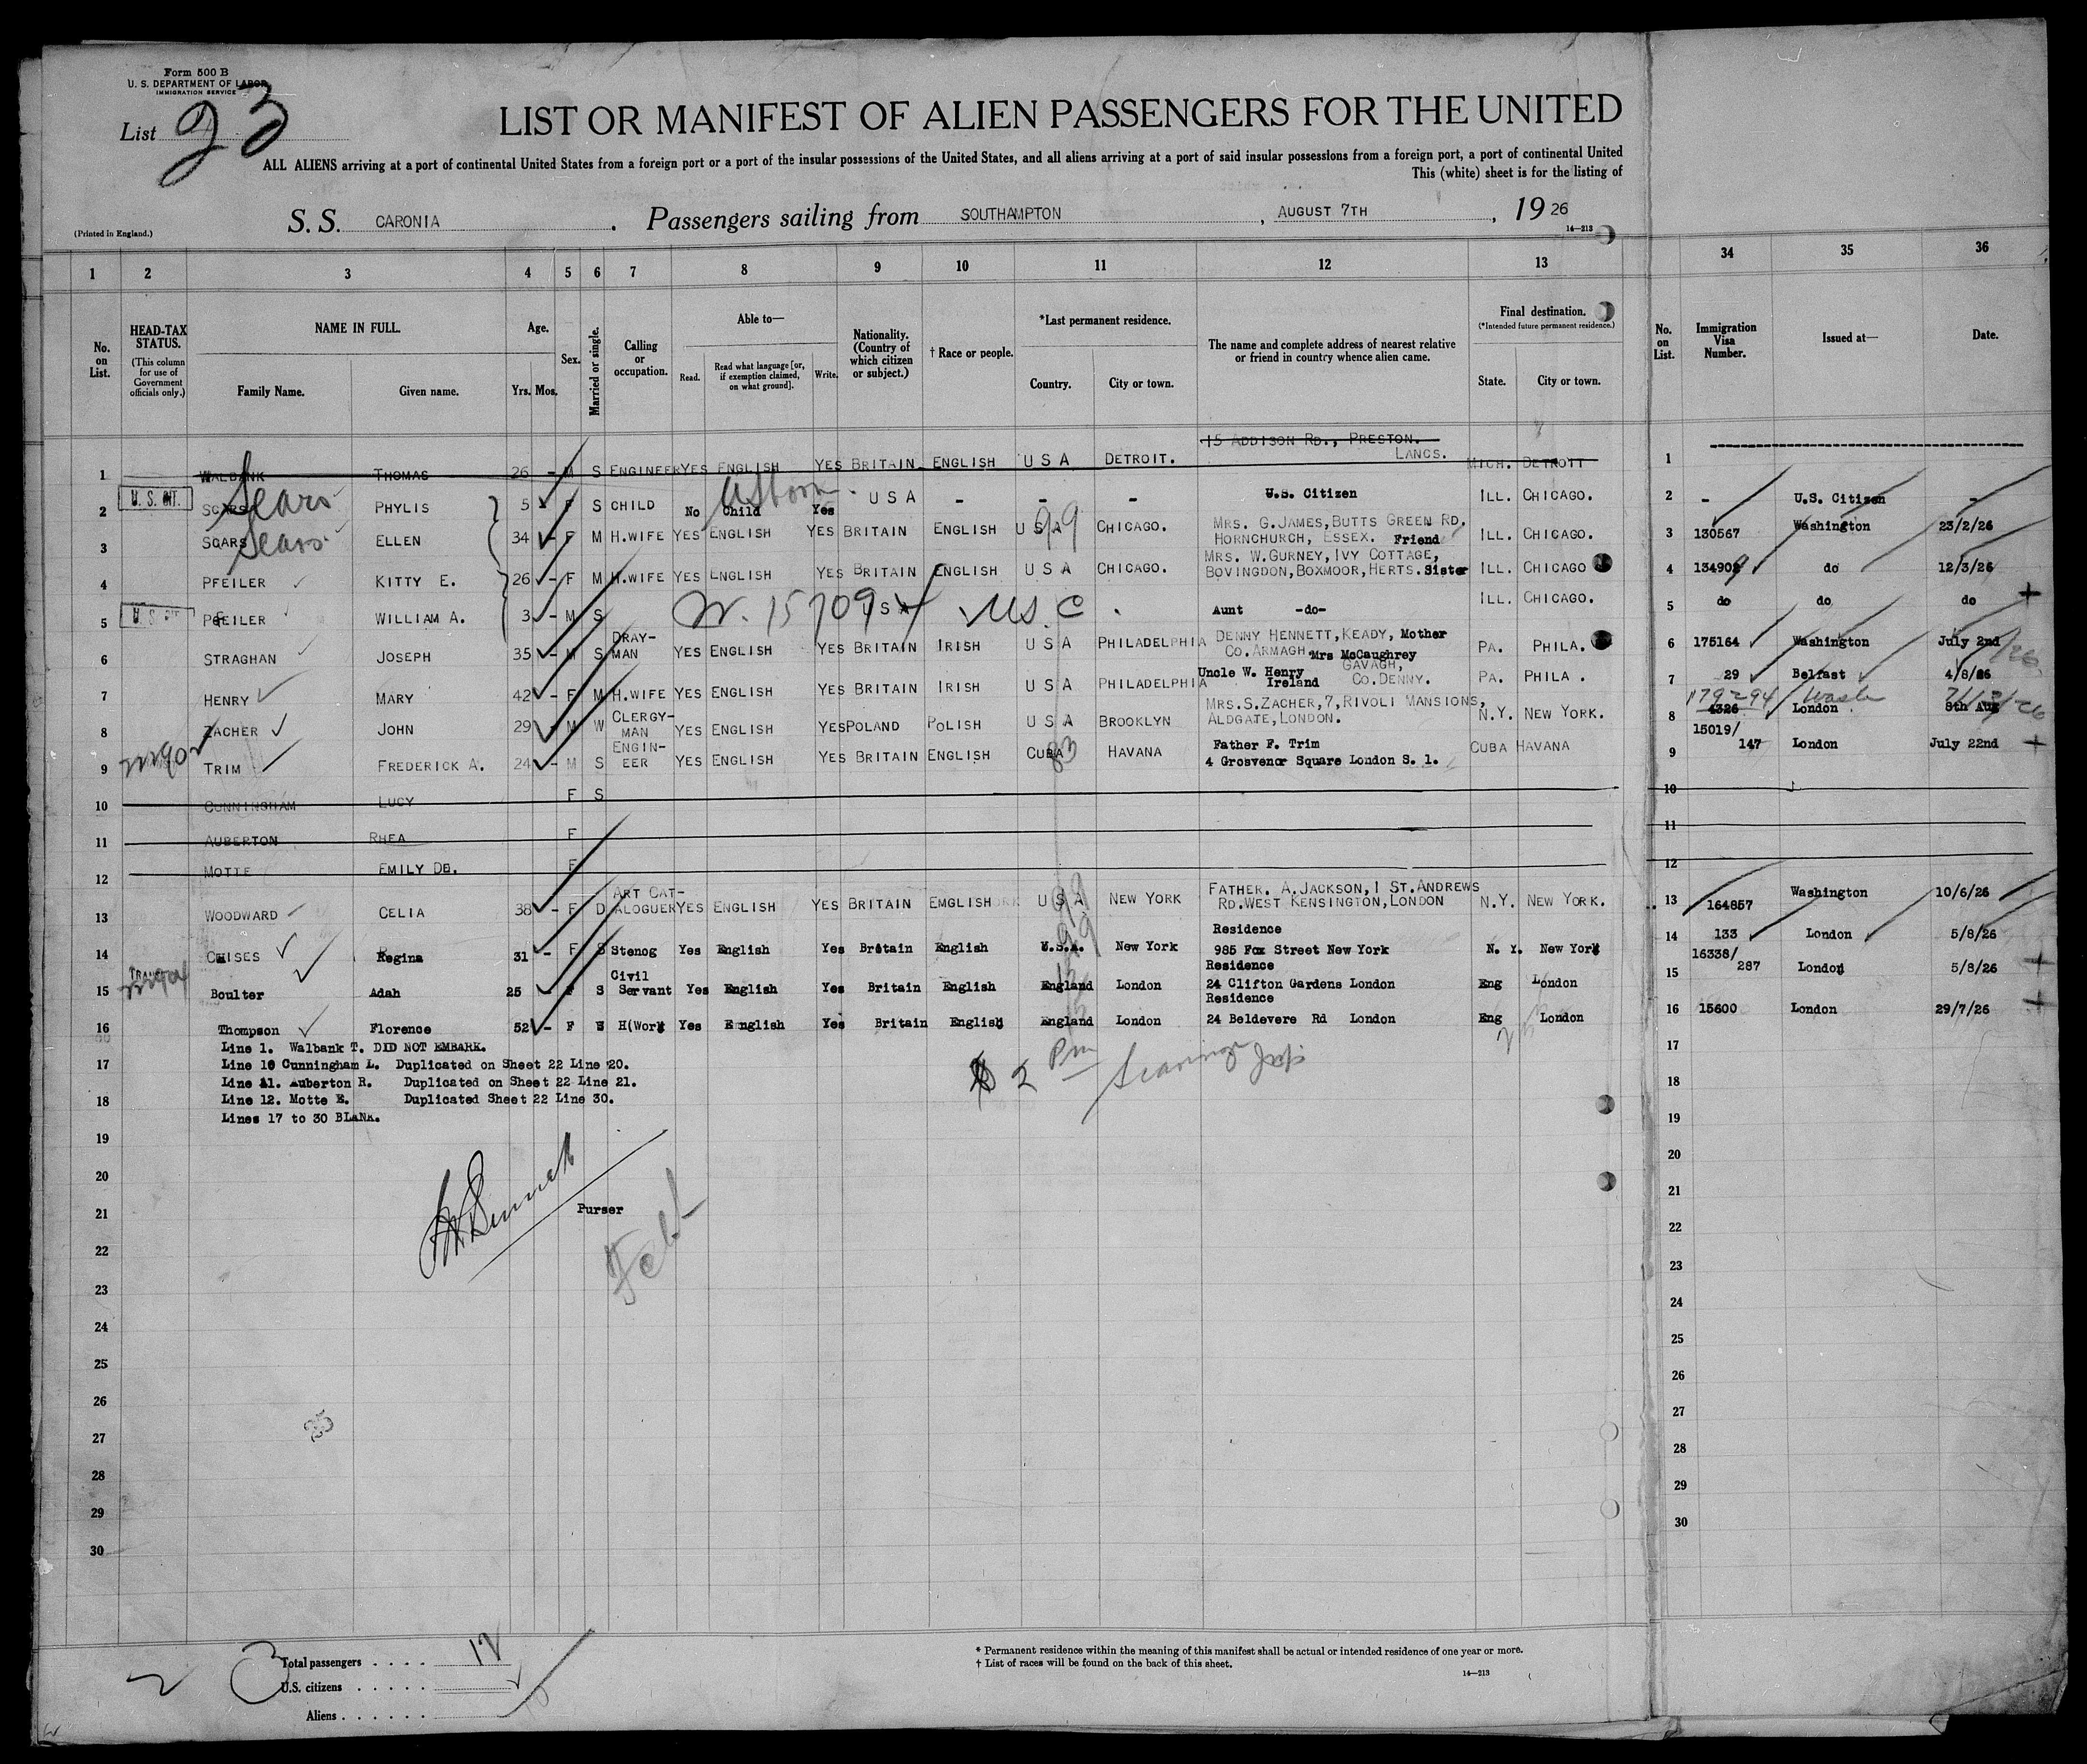 Form 500 B
U. S. DEPARTMENT OF LABOR
IMMIGRATION SERVICE
List 23
LIST OR MANIFEST OF ALIEN PASSENGERS FOR THE UNITED
ALL ALIENS arriving at a port of continental United States from a foreign port or a port of the insular possessions of the United States, and all aliens arriving at a port of said insular possessions from a foreign port, a port of continental United
This (white) sheet is for the listing of
(Printed in England.)
S. S. CARONIA . Passengers sailing from SOUTHAMPTON , AUGUST 7TH , 19 26
14—213
1 2 3 4 5 6 7 8 9 10 11 12 13 34 35 36
No. on List.
HEAD-TAX STATUS.
(This column for use of Government officials only.)
NAME IN FULL.
Family Name. Given name.
Age.
Yrs. Mos.
Sex.
Married or single.
Calling or occupation.
Able to—
Read. Read what language [or, if exemption claimed, on what ground]. Write.
Nationality. (Country of which citizen or subject.)
† Race or people.
*Last permanent residence.
Country. City or town.
The name and complete address of nearest relative or friend in country whence alien came.
Final destination.
(*Intended future permanent residence.)
State. City or town.
No. on List.
Immigration Visa Number.
Issued at—
Date.
15 ADDISON RD., PRESTON.
LANCS.
1 WALBANK THOMAS 26 - M S ENGINEER YES ENGLISH YES BRITAIN ENGLISH U S A DETROIT. MICH. DETROIT 1
2 U. S. CIT. SCARS Sears PHYLIS 5 - F S CHILD No Child Yes U S A - - - U.S. Citizen ILL. CHICAGO. 2 - U.S. Citizen -
3 SCARS Sears ELLEN 34 - F M H.WIFE YES ENGLISH YES BRITAIN ENGLISH U S A 99 CHICAGO. MRS. G.JAMES, BUTTS GREEN RD. HORNCHURCH, ESSEX. Friend ILL. CHICAGO. 3 130567 Washington 23/2/26
4 PFEILER KITTY E. 26 - F M H.WIFE YES ENGLISH YES BRITAIN ENGLISH U S A CHICAGO. MRS. W.GURNEY, IVY COTTAGE, BOVINGDON, BOXMOOR, HERTS. Sister ILL. CHICAGO 4 134902 do 12/3/26
5 U. S. CIT PFEILER WILLIAM A. 3 - M S U S A U.S.C. Aunt -do- ILL. CHICAGO. 5 do do do
6 STRAGHAN JOSEPH 35 - M S DRAY-MAN YES ENGLISH YES BRITAIN IRISH U S A PHILADELPHIA DENNY HENNETT, KEADY, Mother CO. ARMAGH. Mrs McCaughrey PA. PHILA. 6 175164 Washington July 2nd /26
7 HENRY MARY 42 - F M H.WIFE YES ENGLISH YES BRITAIN IRISH U S A PHILADELPHIA Uncle W. Henry GAVAGH, Ireland CO. DENNY. PA. PHILA. 7 29 Belfast 4/8/26
8 ZACHER JOHN 29 - M W CLERGY-MAN YES ENGLISH YES POLAND POLISH U S A BROOKLYN MRS. S. ZACHER, 7, RIVOLI MANSIONS, ALDGATE, LONDON. N.Y. NEW YORK. 8 179294 Wash 4326 London 5th Aug
9 TRIM FREDERICK A. 24 - M S ENGIN-EER YES ENGLISH YES BRITAIN ENGLISH CUBA 83 HAVANA Father F. Trim 4 Grosvenor Square London S. 1. CUBA HAVANA 9 15019/147 London July 22nd
10 CUNNINGHAM LUCY F S 10
11 AUBERTON RHEA F 11
12 MOTTE EMILY DE. F 12
13 WOODWARD CELIA 38 - F D ART CAT-ALOGUER YES ENGLISH YES BRITAIN EMGLISH U S A 99 NEW YORK FATHER. A. JACKSON, 1 ST. ANDREWS RD. WEST KENSINGTON, LONDON N.Y. NEW YORK. 13 164857 Washington 10/6/26
14 CHISES Regina 31 - F S Stenog Yes English Yes Britain English U.S.A. 99 New York Residence 985 Fox Street New York N. Y. New York 14 133 London 5/8/26
15 Boulter Adah 25 - F S Civil Servant Yes English Yes Britain English England London Residence 24 Clifton Gardens London Eng London 15 16338/287 London 5/8/26
16 Thompson Florence 52 - F S H(Work Yes English Yes Britain English England London Residence 24 Beldevere Rd London Eng London 16 15600 London 29/7/26
Line 1. Walbank T. DID NOT EMBARK.
17 Line 10 Cunningham L. Duplicated on Sheet 22 Line 20. 17
Line 11. Auberton R. Duplicated on Sheet 22 Line 21.
18 Line 12. Motte E. Duplicated Sheet 22 Line 30. 18
Lines 17 to 30 BLANK.
19 19
20 20
21 Purser 21
22 22
23 23
24 24
25 25
26 26
27 27
28 28
29 29
30 30
Total passengers . . . . 12
U.S. citizens . . . . .
Aliens . . . . . .
* Permanent residence within the meaning of this manifest shall be actual or intended residence of one year or more.
† List of races will be found on the back of this sheet.
14—213